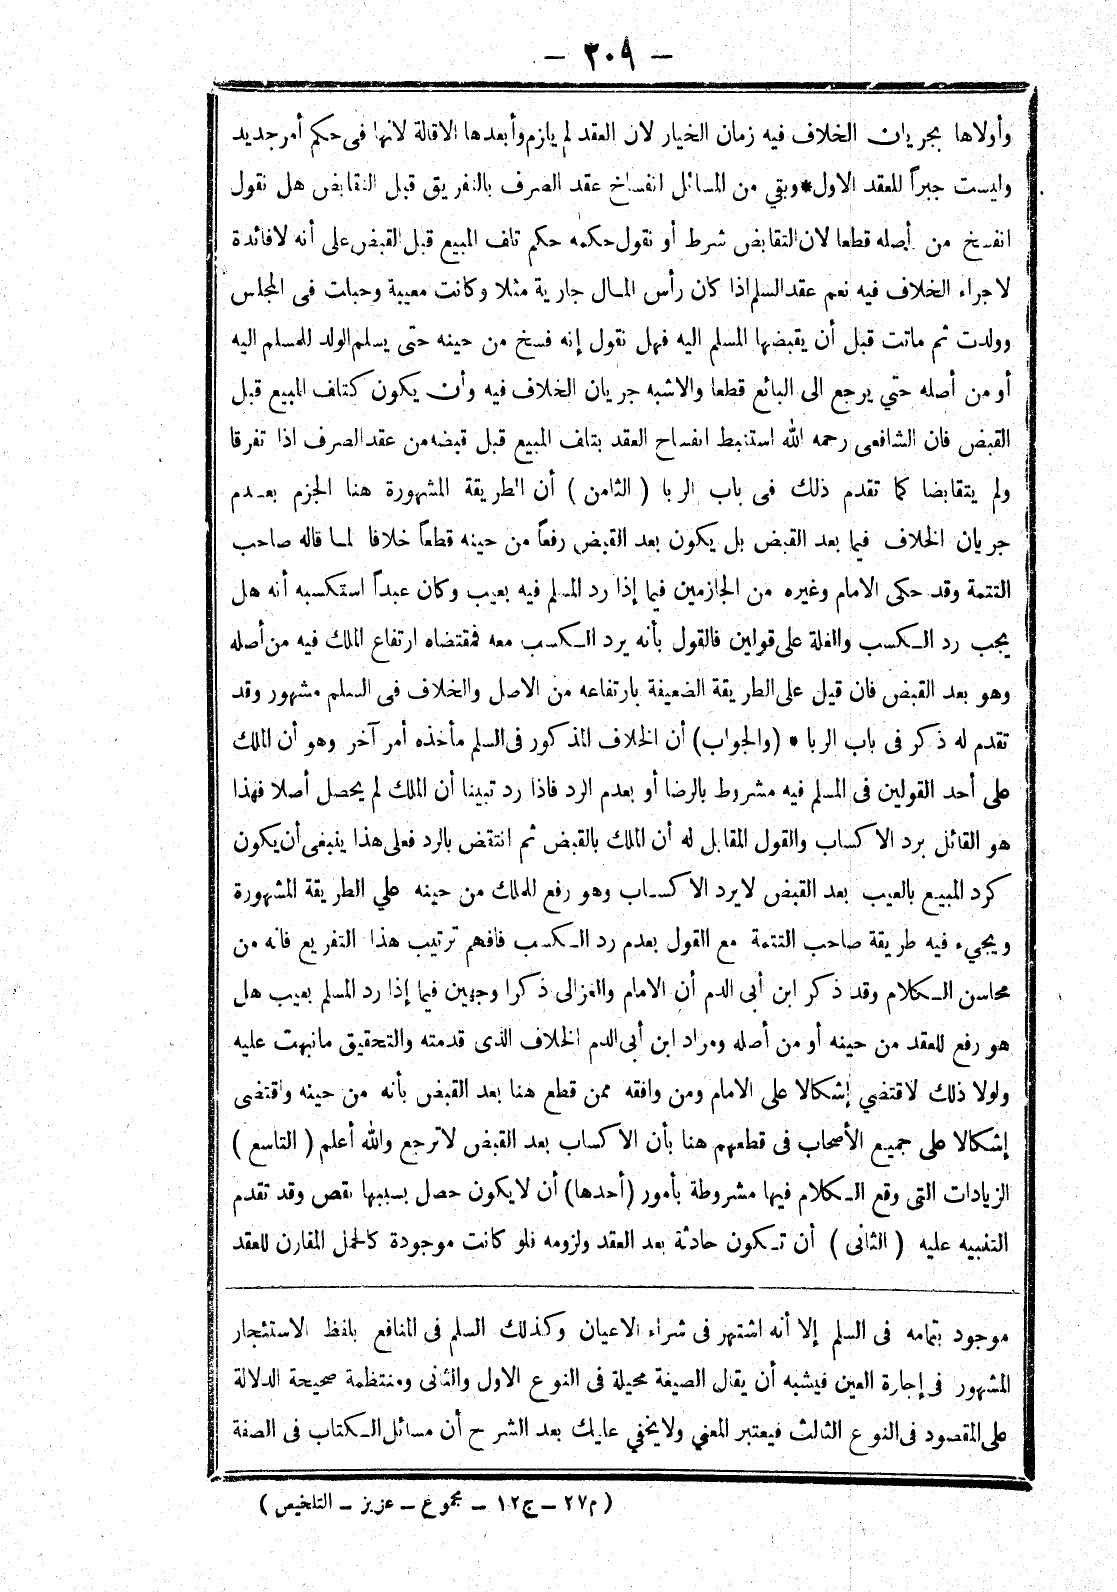 — ٣٠٩ —
وأولاها بجريان الخلاف فيه زمان الخيار لان العقد لم يلزم وأبعدها الاقالة لانها فى حكم أمر جديد
وليست جبراً للعقد الاول * وبقي من المسائل انفساخ عقد الصرف بالتفريق قبل التقابض هل نقول
انفسخ من أصله قطعا لان التقابض شرط أو نقول حكمه حكم تلف المبيع قبل القبض على أنه لا فائدة
لاجراء الخلاف فيه نعم عقد السلم اذا كان رأس المال جارية مثلا وكانت معيبة وحبلت فى المجلس
وولدت ثم ماتت قبل أن يقبضها المسلم اليه فهل نقول إنه فسخ من حينه حتى يسلم الولد للمسلم اليه
أو من أصله حتي يرجع الى البائع قطعا والاشبه جريان الخلاف فيه وأن يكون كتلف المبيع قبل
القبض فان الشافعى رحمه الله استنبط انفساح العقد بتلف المبيع قبل قبضه من عقد الصرف اذا تفرقا
ولم يتقابضا كما تقدم ذلك فى باب الربا ( الثامن ) أن الطريقة المشهورة هنا الجزم بعدم
جريان الخلاف فيما بعد القبض بل يكون بعد القبض رفعاً من حينه قطعاً خلافا لما قاله صاحب
التتمة وقد حكى الامام وغيره من الجازمين فيما إذا رد المسلم فيه بعيب وكان عبداً استكسبه أنه هل
يجب رد الكسب والغلة على قولين فالقول بأنه يرد الكسب معه فمقتضاه ارتفاع الملك فيه من أصله
وهو بعد القبض فان قيل على الطريقة الضعيفة بارتفاعه من الاصل والخلاف فى السلم مشهور وقد
تقدم له ذكر فى باب الربا * (والجواب) أن الخلاف المذكور فى السلم مأخذه أمر آخر وهو أن الملك
على أحد القولين فى المسلم فيه مشروط بالرضا أو بعدم الرد فاذا رد تبينا أن الملك لم يحصل أصلا فهذا
هو القائل برد الاكساب والقول المقابل له أن الملك بالقبض ثم انتقض بالرد فعلى هذا ينبغى أن يكون
كرد المبيع بالعيب بعد القبض لا يرد الاكساب وهو رفع للملك من حينه علي الطريقة المشهورة
ويجيء فيه طريقة صاحب التتمة مع القول بعدم رد الكسب فافهم ترتيب هذا التفريع فانه من
محاسن الكلام وقد ذكر ابن أبى الدم أن الامام والغزالى ذكرا وجهين فيما إذا رد المسلم بعيب هل
هو رفع للعقد من حينه أو من أصله ومراد ابن أبى الدم الخلاف الذى قدمته والتحقيق ما نبهت عليه
ولولا ذلك لاقتضي إشكالا على الامام ومن وافقه ممن قطع هنا بعد القبض بأنه من حينه واقتضى
إشكالا على جميع الأصحاب فى قطعهم هنا بأن الاكساب بعد القبض لا ترجع والله أعلم ( التاسع )
الزيادات التى وقع الكلام فيها مشروطة بأمور (أحدها) أن لا يكون حصل بسببها نقص وقد تقدم
التنبيه عليه ( الثانى ) أن تكون حادثة بعد العقد ولزومه فلو كانت موجودة كالحمل المقارن للعقد
موجود بتمامه فى السلم إلا أنه اشتهر فى شراء الاعيان وكذلك السلم فى المنافع بلفظ الاستئجار
المشهور فى إجارة العين فيشبه أن يقال الصيغة محيلة فى النوع الاول والثانى ومنتظمة صحيحة الدلالة
على المقصود فى النوع الثالث فيعتبر المعني ولا يخفي عليك بعد الشرح أن مسائل الكتاب فى الصفة
( م ٢٧ — ج ١٢ — مجموع — عزيز — التلخيص )